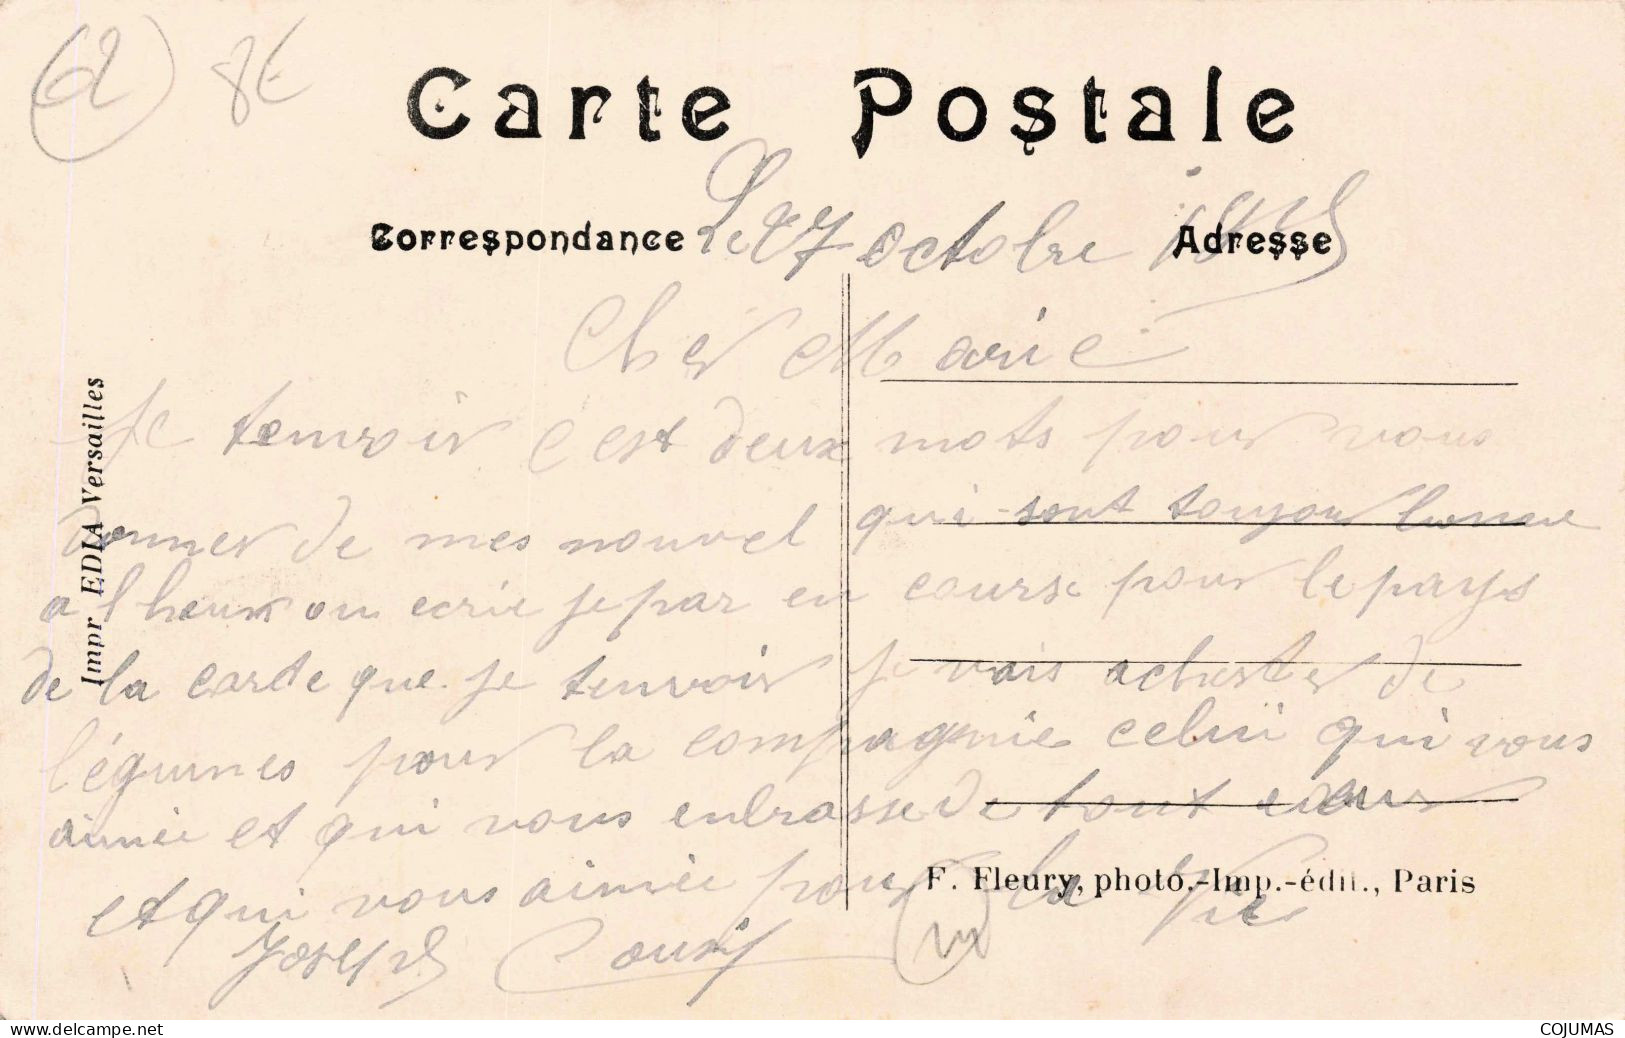 (d) 8€
Carte Postale
Correspondance Le 27 octobre Adresse
Cher Marie
Je tenvoir c est deux mots pour vous
donner de mes nouvel qui sont toujour bonne
a l heur ou ecrie je par en course pour le pays
de la carde que je tenvoir je vais achester de
légumes pour la compagnie celui qui vous
aimée et qui vous enbrasse de tout cœur
et qui vous aimée pour la vie
Joseph
Impr EDIA Versailles
F. Fleury, photo.-Imp.-édit., Paris
COJUMAS
www.delcampe.net